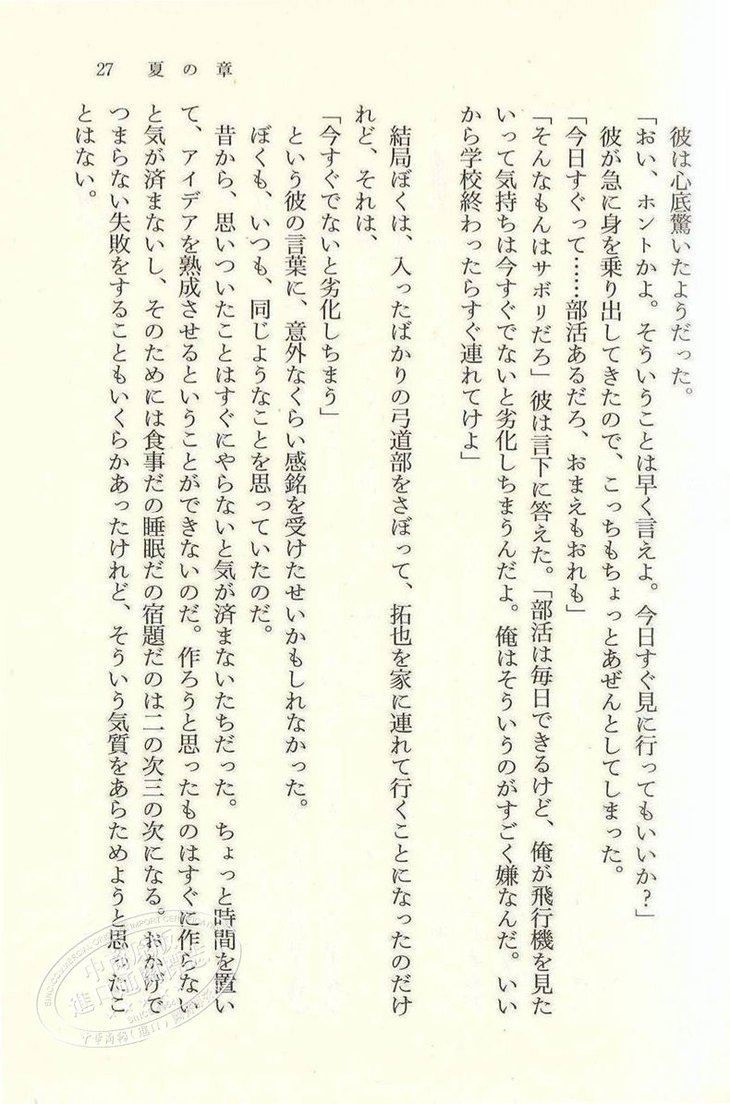 27　夏の章
彼は心底驚いたようだった。
「おい、ホントかよ。そういうことは早く言えよ。今日すぐ見に行ってもいいか？」
彼が急に身を乗り出してきたので、こっちもちょっとあぜんとしてしまった。
「今日すぐって……部活あるだろ、おまえもおれも」
「そんなもんはサボリだろ」彼は言下に答えた。「部活は毎日できるけど、俺が飛行機を見た
いって気持ちは今すぐでないと劣化しちまうんだよ。俺はそういうのがすごく嫌なんだ。いい
から学校終わったらすぐ連れてけよ」
結局ぼくは、入ったばかりの弓道部をさぼって、拓也を家に連れて行くことになったのだけ
れど、それは、
「今すぐでないと劣化しちまう」
という彼の言葉に、意外なくらい感銘を受けたせいかもしれなかった。
ぼくも、いつも、同じようなことを思っていたのだ。
昔から、思いついたことはすぐにやらないと気が済まないたちだった。ちょっと時間を置い
て、アイデアを熟成させるということができないのだ。作ろうと思ったものはすぐに作らない
と気が済まないし、そのためには食事だの睡眠だの宿題だのは二の次三の次になる。おかげで
つまらない失敗をすることもいくらかあったけれど、そういう気質をあらためようと思ったこ
とはない。